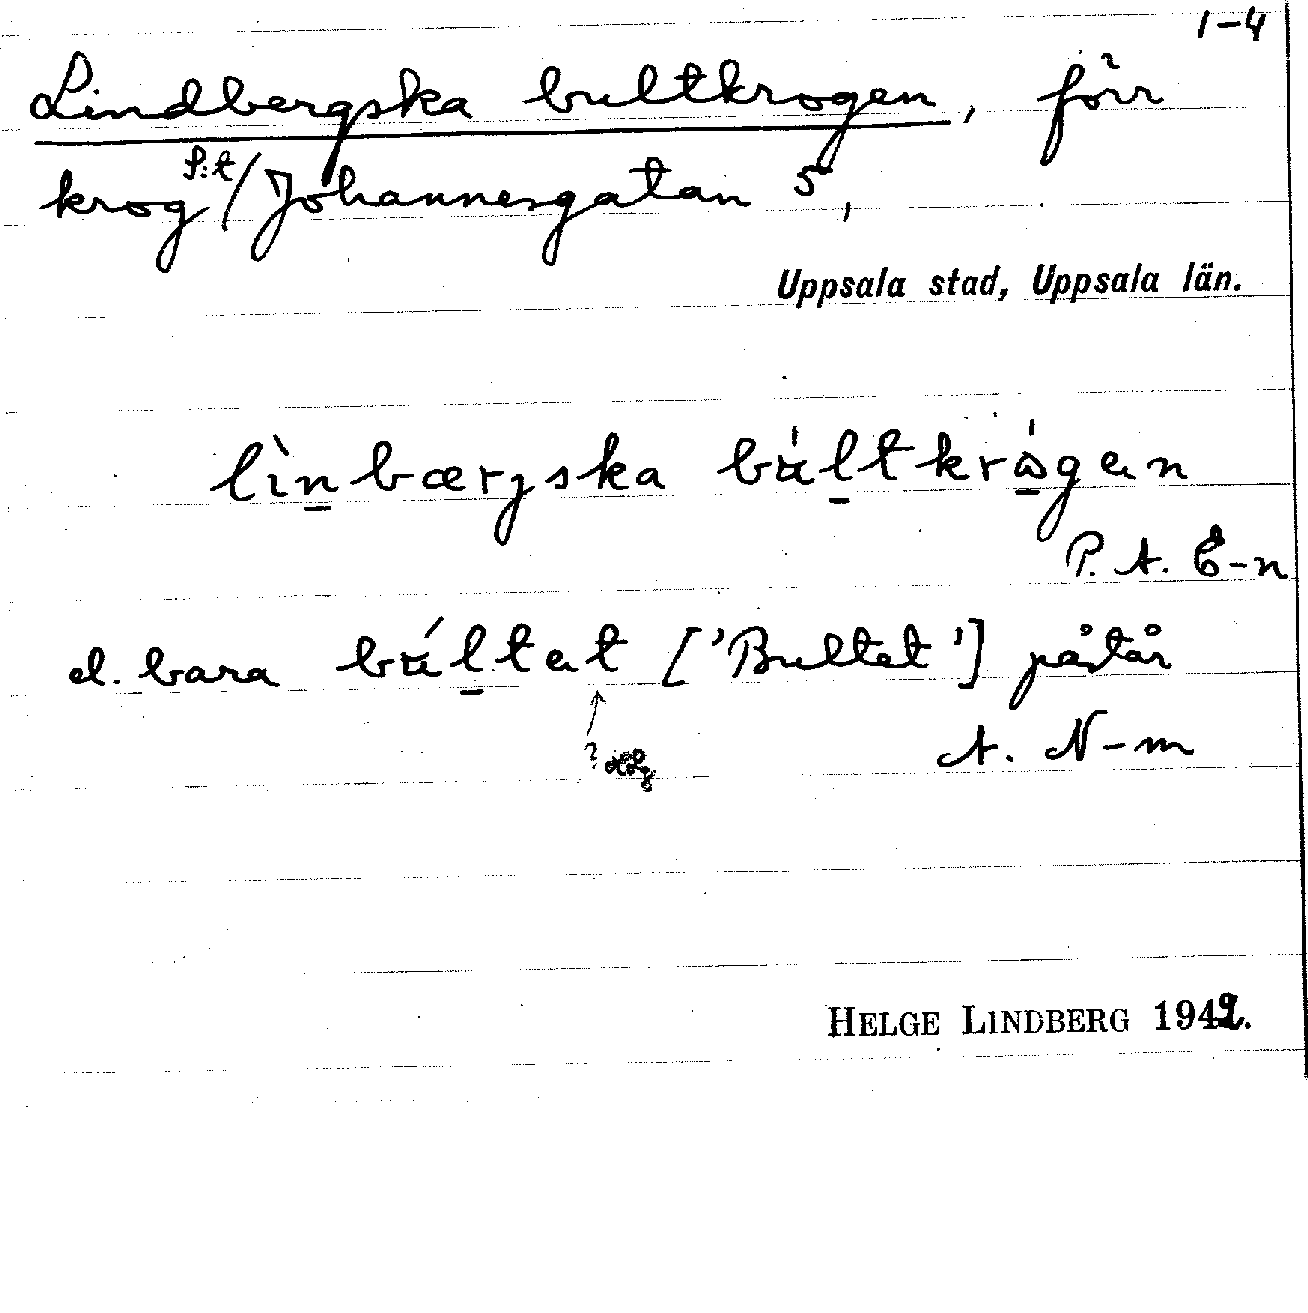 1-4
Lindbergska bultkrogen, förr
krog f.t/Johannesgatan 5,
Uppsala stad, Uppsala län.
lìnbærjska búltkrógen
P. A. E-n
el. bara búltet ['Bultet'] påstår
? HLg
A. N-m
HELGE LINDBERG 1942.